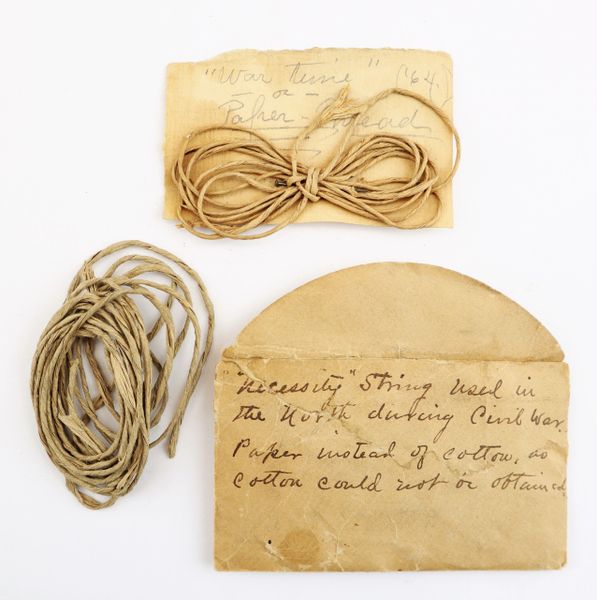 "War time" ('64)
— or —
Paper - Thread
"Necessity" String used in
the North during Civil War.
Paper instead of cotton, as
cotton could not be obtained